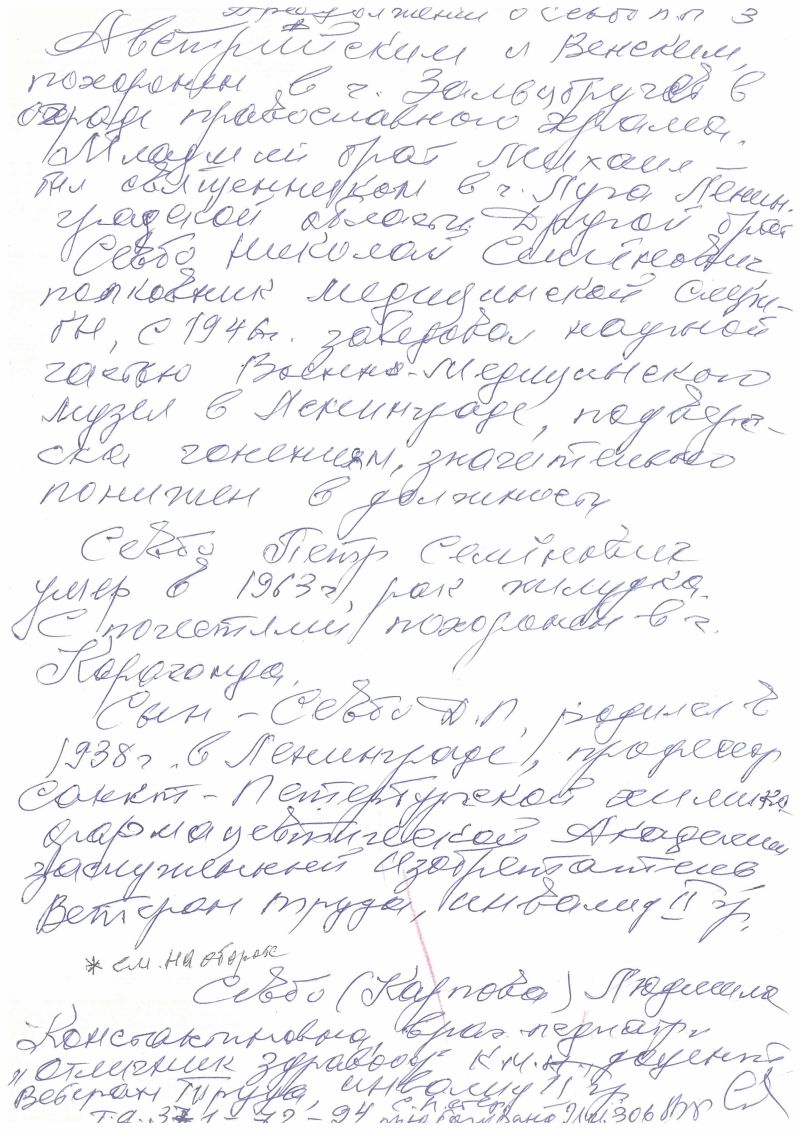 Продолжении о Севбо П 3
Австрийским и Венским,
похоронен в г. Зальцбурге в
ограде православного храма.
Младший брат Михаил –
был священником в г. Луга Ленин.
градской области. Другой брат
Севбо Николай Семёнович
полковник медицинской служ-
бы, с 1946г. заведовал научной
частью Военно-Медицинского
музея в Ленинграде, подверг-
ся гонениям, значительно
понижен в должности
Севбо Петр Семёнович
умер в 1963г, рак желудка.
С почестями похоронен в г.
Караганда.
Сын – Севбо Д.П. родился в
1938г. в Ленинграде, профессор
Санкт-Петербургской химико
фармацевтической Академии
заслуженный изобретатель
Ветеран труда, инвалид II гр.
* см. на обороте
Севбо (Карпова) Людмила
Константиновна, врач педиатр,
"отличник здравоохр" к.м.н., доцент
Ветеран труда, инвалид II гр.